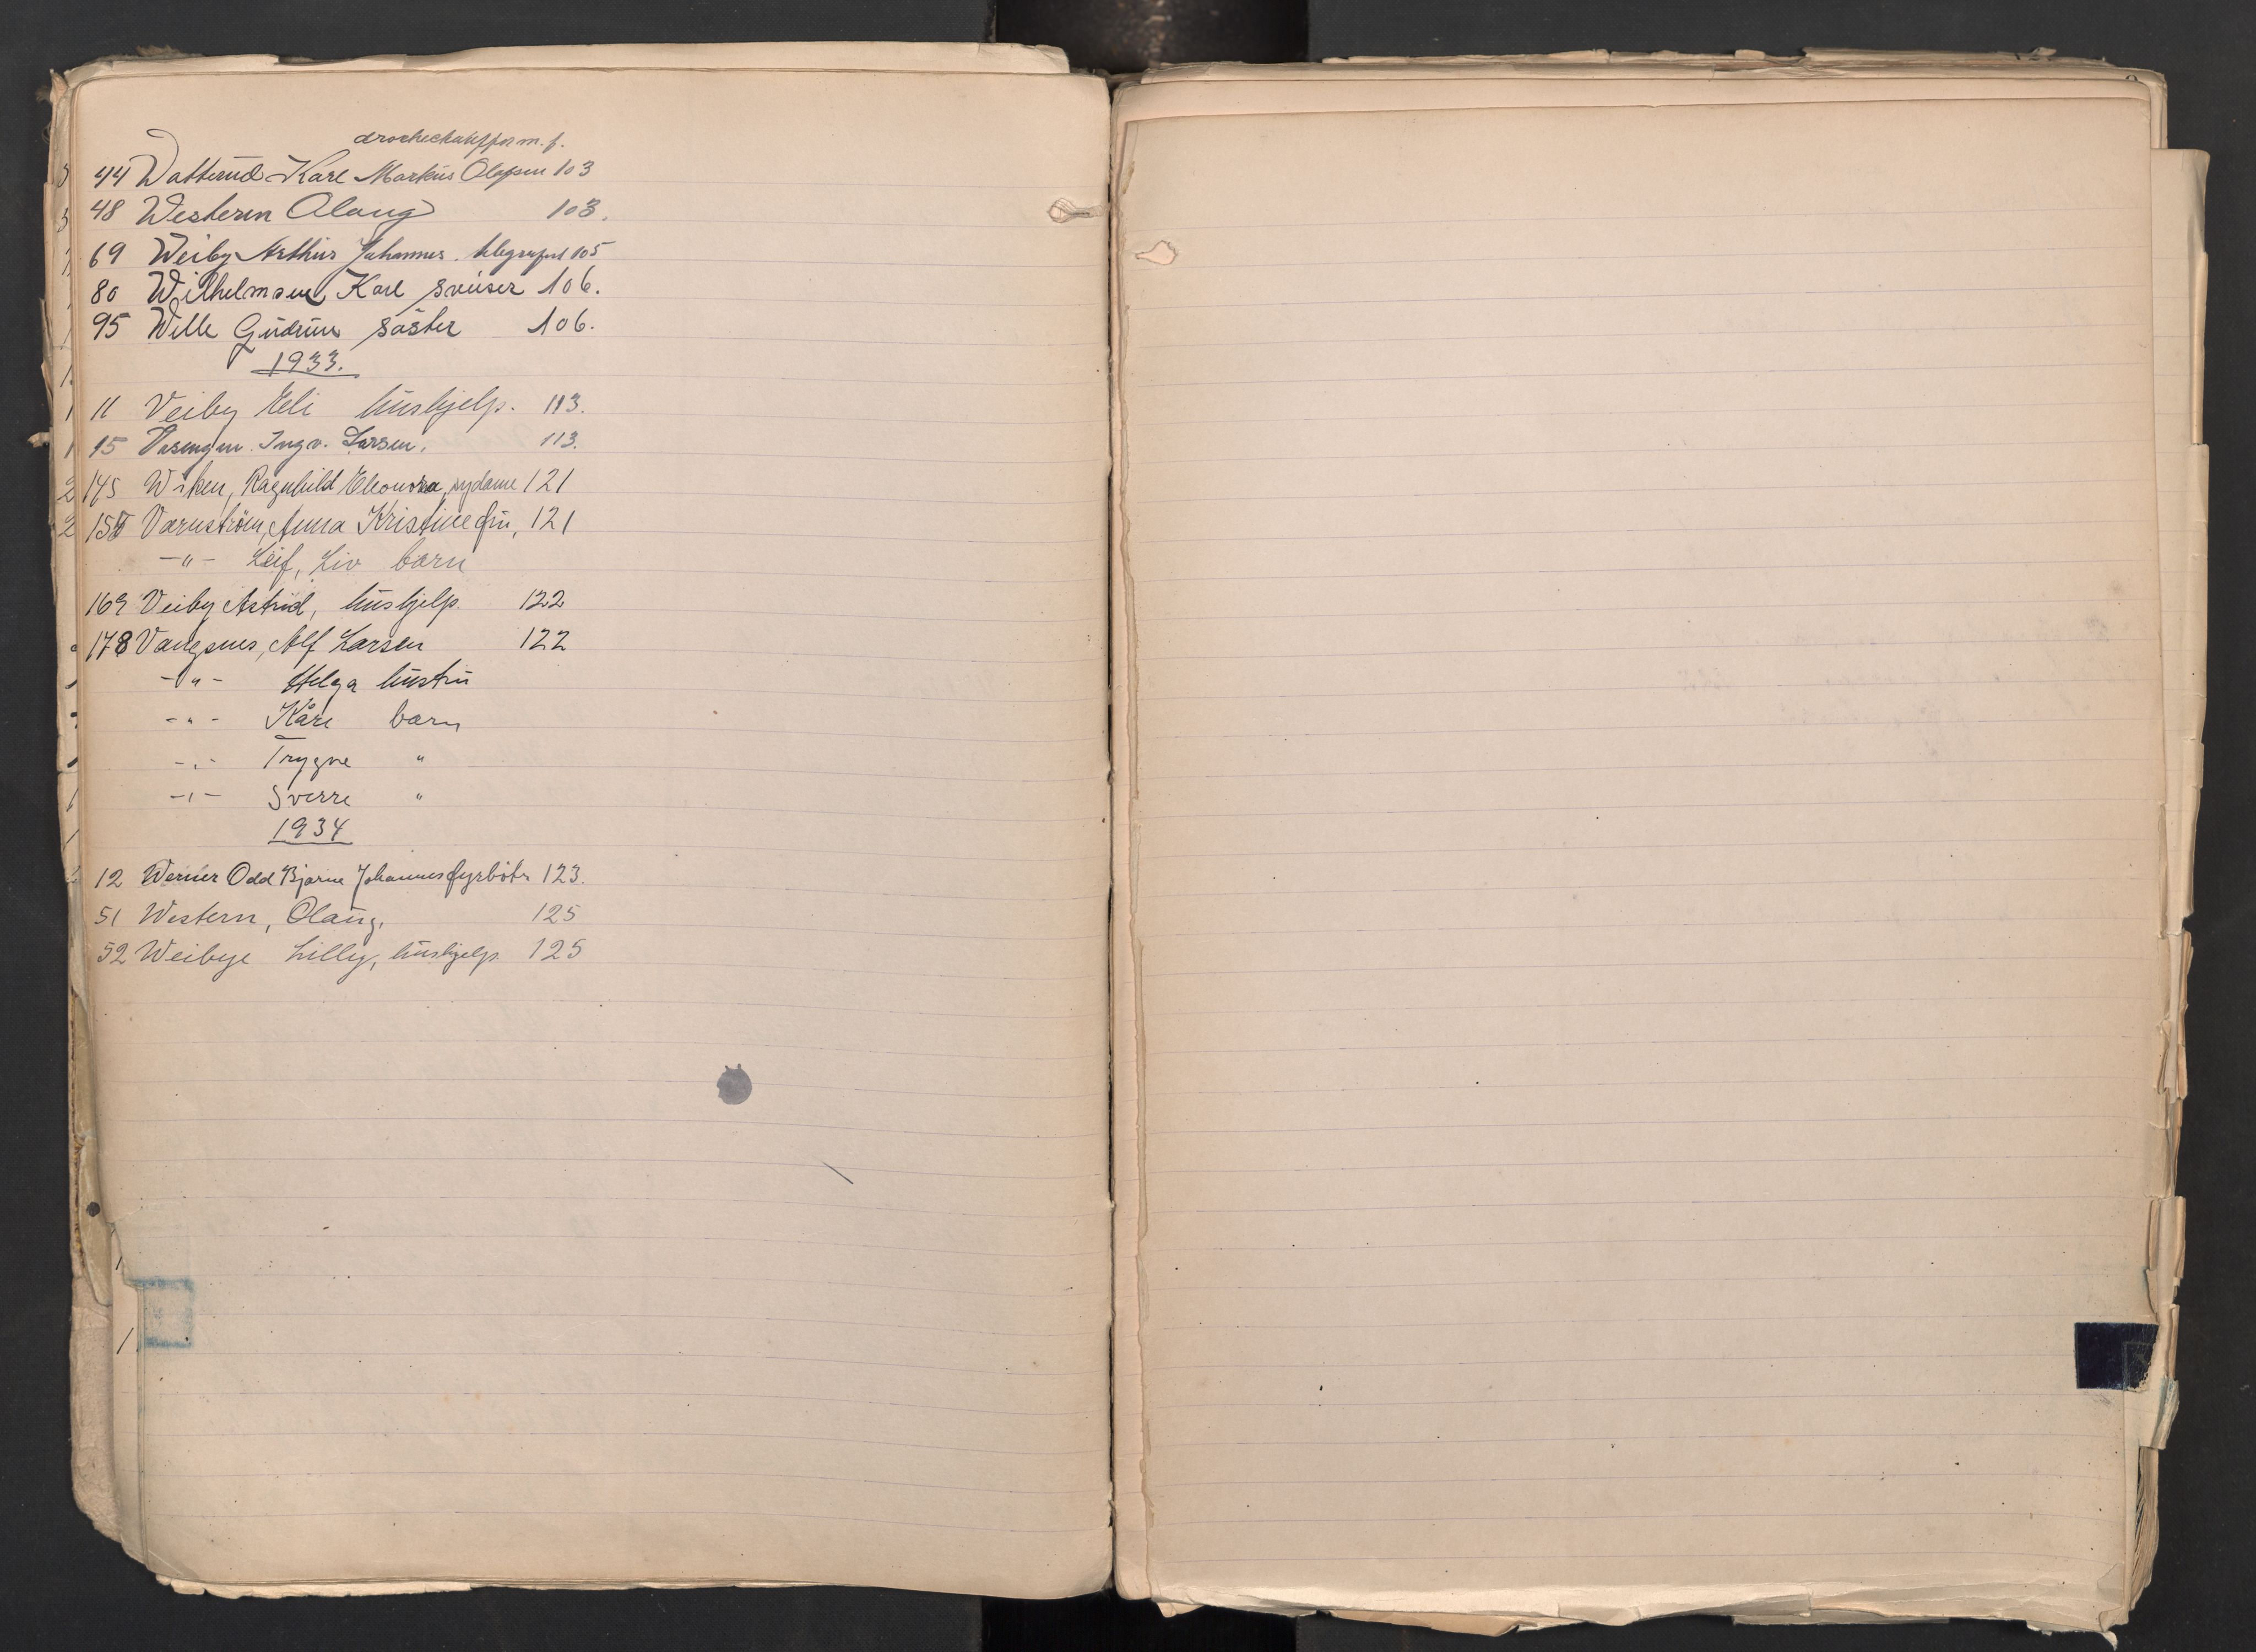 m. f.
44 Watterud Karl Markus Olafsen 103
48 Western Olaug 103.
69 Weiby Arthur Johannes. telegrafist 105
80 Wilhelmsen, Karl sveiser 106.
95 Wille Gudrun søster 106.
1933.
11 Veiby Eli hushjelp. 113.
15 Vasengen. Ingv. Larsen. 113.
145 Wiken, Ragnhild Eleonora, sydame 121
155 Varnström, Anna Kristine fru, 121
-"- Leif, Liv barn
169 Veiby Astrid, hushjelp. 122
178 Vangsnes, Alf Larsen 122
-"- Helga hustru
-"- Kåre barn
-"- Trygve "
-"- Sverre "
1934
12 Werner Odd Bjarne Johannes fyrbøter 123.
51 Western, Olaug, 125
52 Weibye Lilly, hushjelp. 125